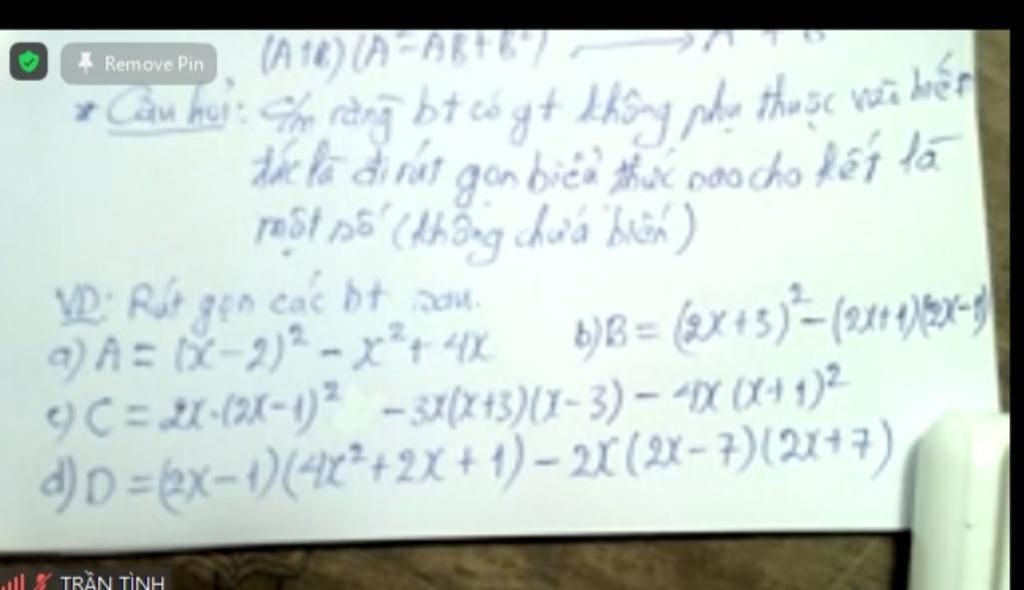 Remove Pin
(A+B)(A²-AB+B²) → A + B
* Câu hỏi: C/m rằng bt có gt không phụ thuộc vào biến
tức là đi rút gọn biểu thức sao cho kết là
một số (không chứa biến)
VD: Rút gọn các bt sau.
a) A = (x-2)² - x² + 4x b) B = (2x+3)² - (2x+1)(2x-
c) C = 2x.(2x-1)² - 3x(x+3)(x-3) - 4x(x+1)²
d) D = (2x-1)(4x²+2x+1) - 2x(2x-7)(2x+7)
TRẦN TÌNH